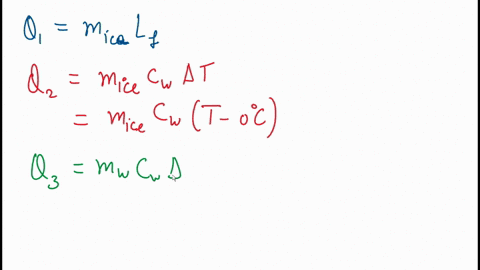 Q₁ = mice Lf
Q₂ = mice Cw ΔT
= mice Cw (T - 0°C)
Q₃ = mw Cw Δ